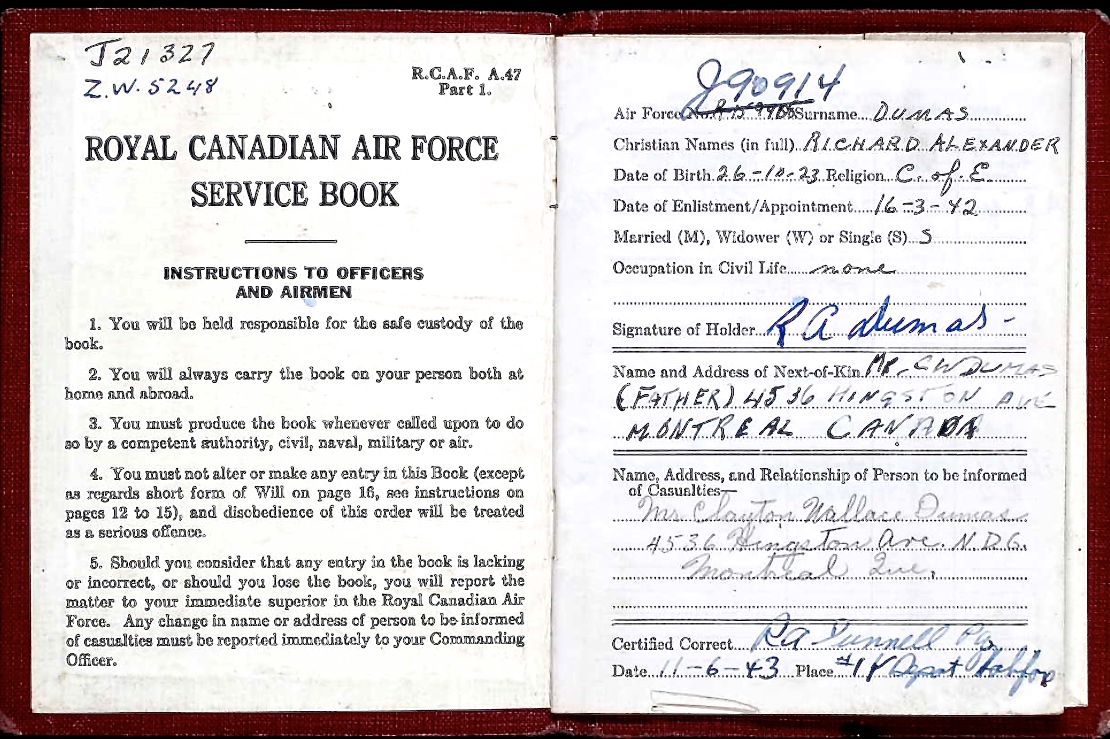 J21327
Z.W. 5248
R.C.A.F. A.47
Part 1.
ROYAL CANADIAN AIR FORCE
SERVICE BOOK
INSTRUCTIONS TO OFFICERS
AND AIRMEN
1. You will be held responsible for the safe custody of the
book.
2. You will always carry the book on your person both at
home and abroad.
3. You must produce the book whenever called upon to do
so by a competent authority, civil, naval, military or air.
4. You must not alter or make any entry in this Book (except
as regards short form of Will on page 16, see instructions on
pages 12 to 15), and disobedience of this order will be treated
as a serious offence.
5. Should you consider that any entry in the book is lacking
or incorrect, or should you lose the book, you will report the
matter to your immediate superior in the Royal Canadian Air
Force. Any change in name or address of person to be informed
of casualties must be reported immediately to your Commanding
Officer.
J90914
Air Force No. Surname DUMAS
Christian Names (in full) RICHARD ALEXANDER
Date of Birth 26-10-23 Religion C. of E.
Date of Enlistment/Appointment 16-3-42
Married (M), Widower (W) or Single (S) S
Occupation in Civil Life none
Signature of Holder R A Dumas
Name and Address of Next-of-Kin Mr. C W DUMAS
(FATHER) 4536 HINGSTON AVE
MONTREAL CANADA
Name, Address, and Relationship of Person to be informed
of Casualties—
Mr Clayton Wallace Dumas
4536 Hingston Ave. N.D.G.
Montreal Que.
Certified Correct
Date 11-6-43 Place Depot Halifax